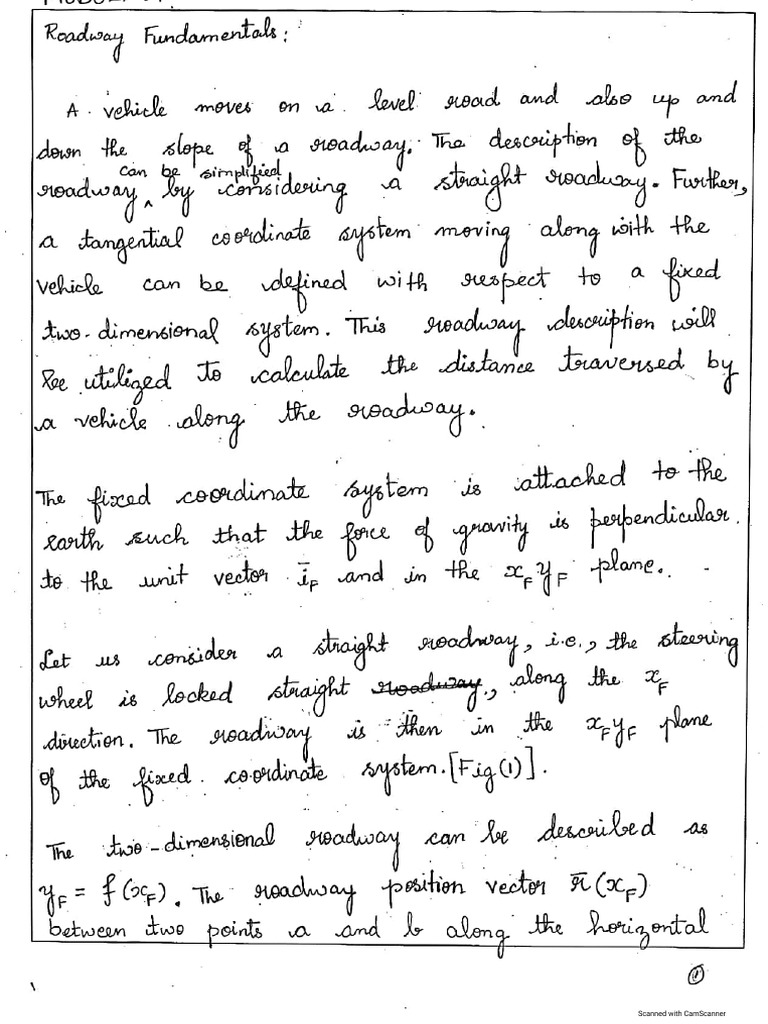 Roadway Fundamentals:
A vehicle moves on a level road and also up and
down the slope of a roadway. The description of the
can be simplified
roadway ^ by considering a straight roadway. Further,
a tangential coordinate system moving along with the
vehicle can be defined with respect to a fixed
two-dimensional system. This roadway description will
be utilized to calculate the distance traversed by
a vehicle along the roadway.
The fixed coordinate system is attached to the
earth such that the force of gravity is perpendicular
to the unit vector i̅_F and in the x_F y_F plane.
Let us consider a straight roadway, i.e., the steering
wheel is locked straight roadway, along the x_F
direction. The roadway is then in the x_F y_F plane
of the fixed coordinate system. [Fig(1)].
The two-dimensional roadway can be described as
y_F = f(x_F). The roadway position vector r̅(x_F)
between two points a and b along the horizontal
1
Scanned with CamScanner